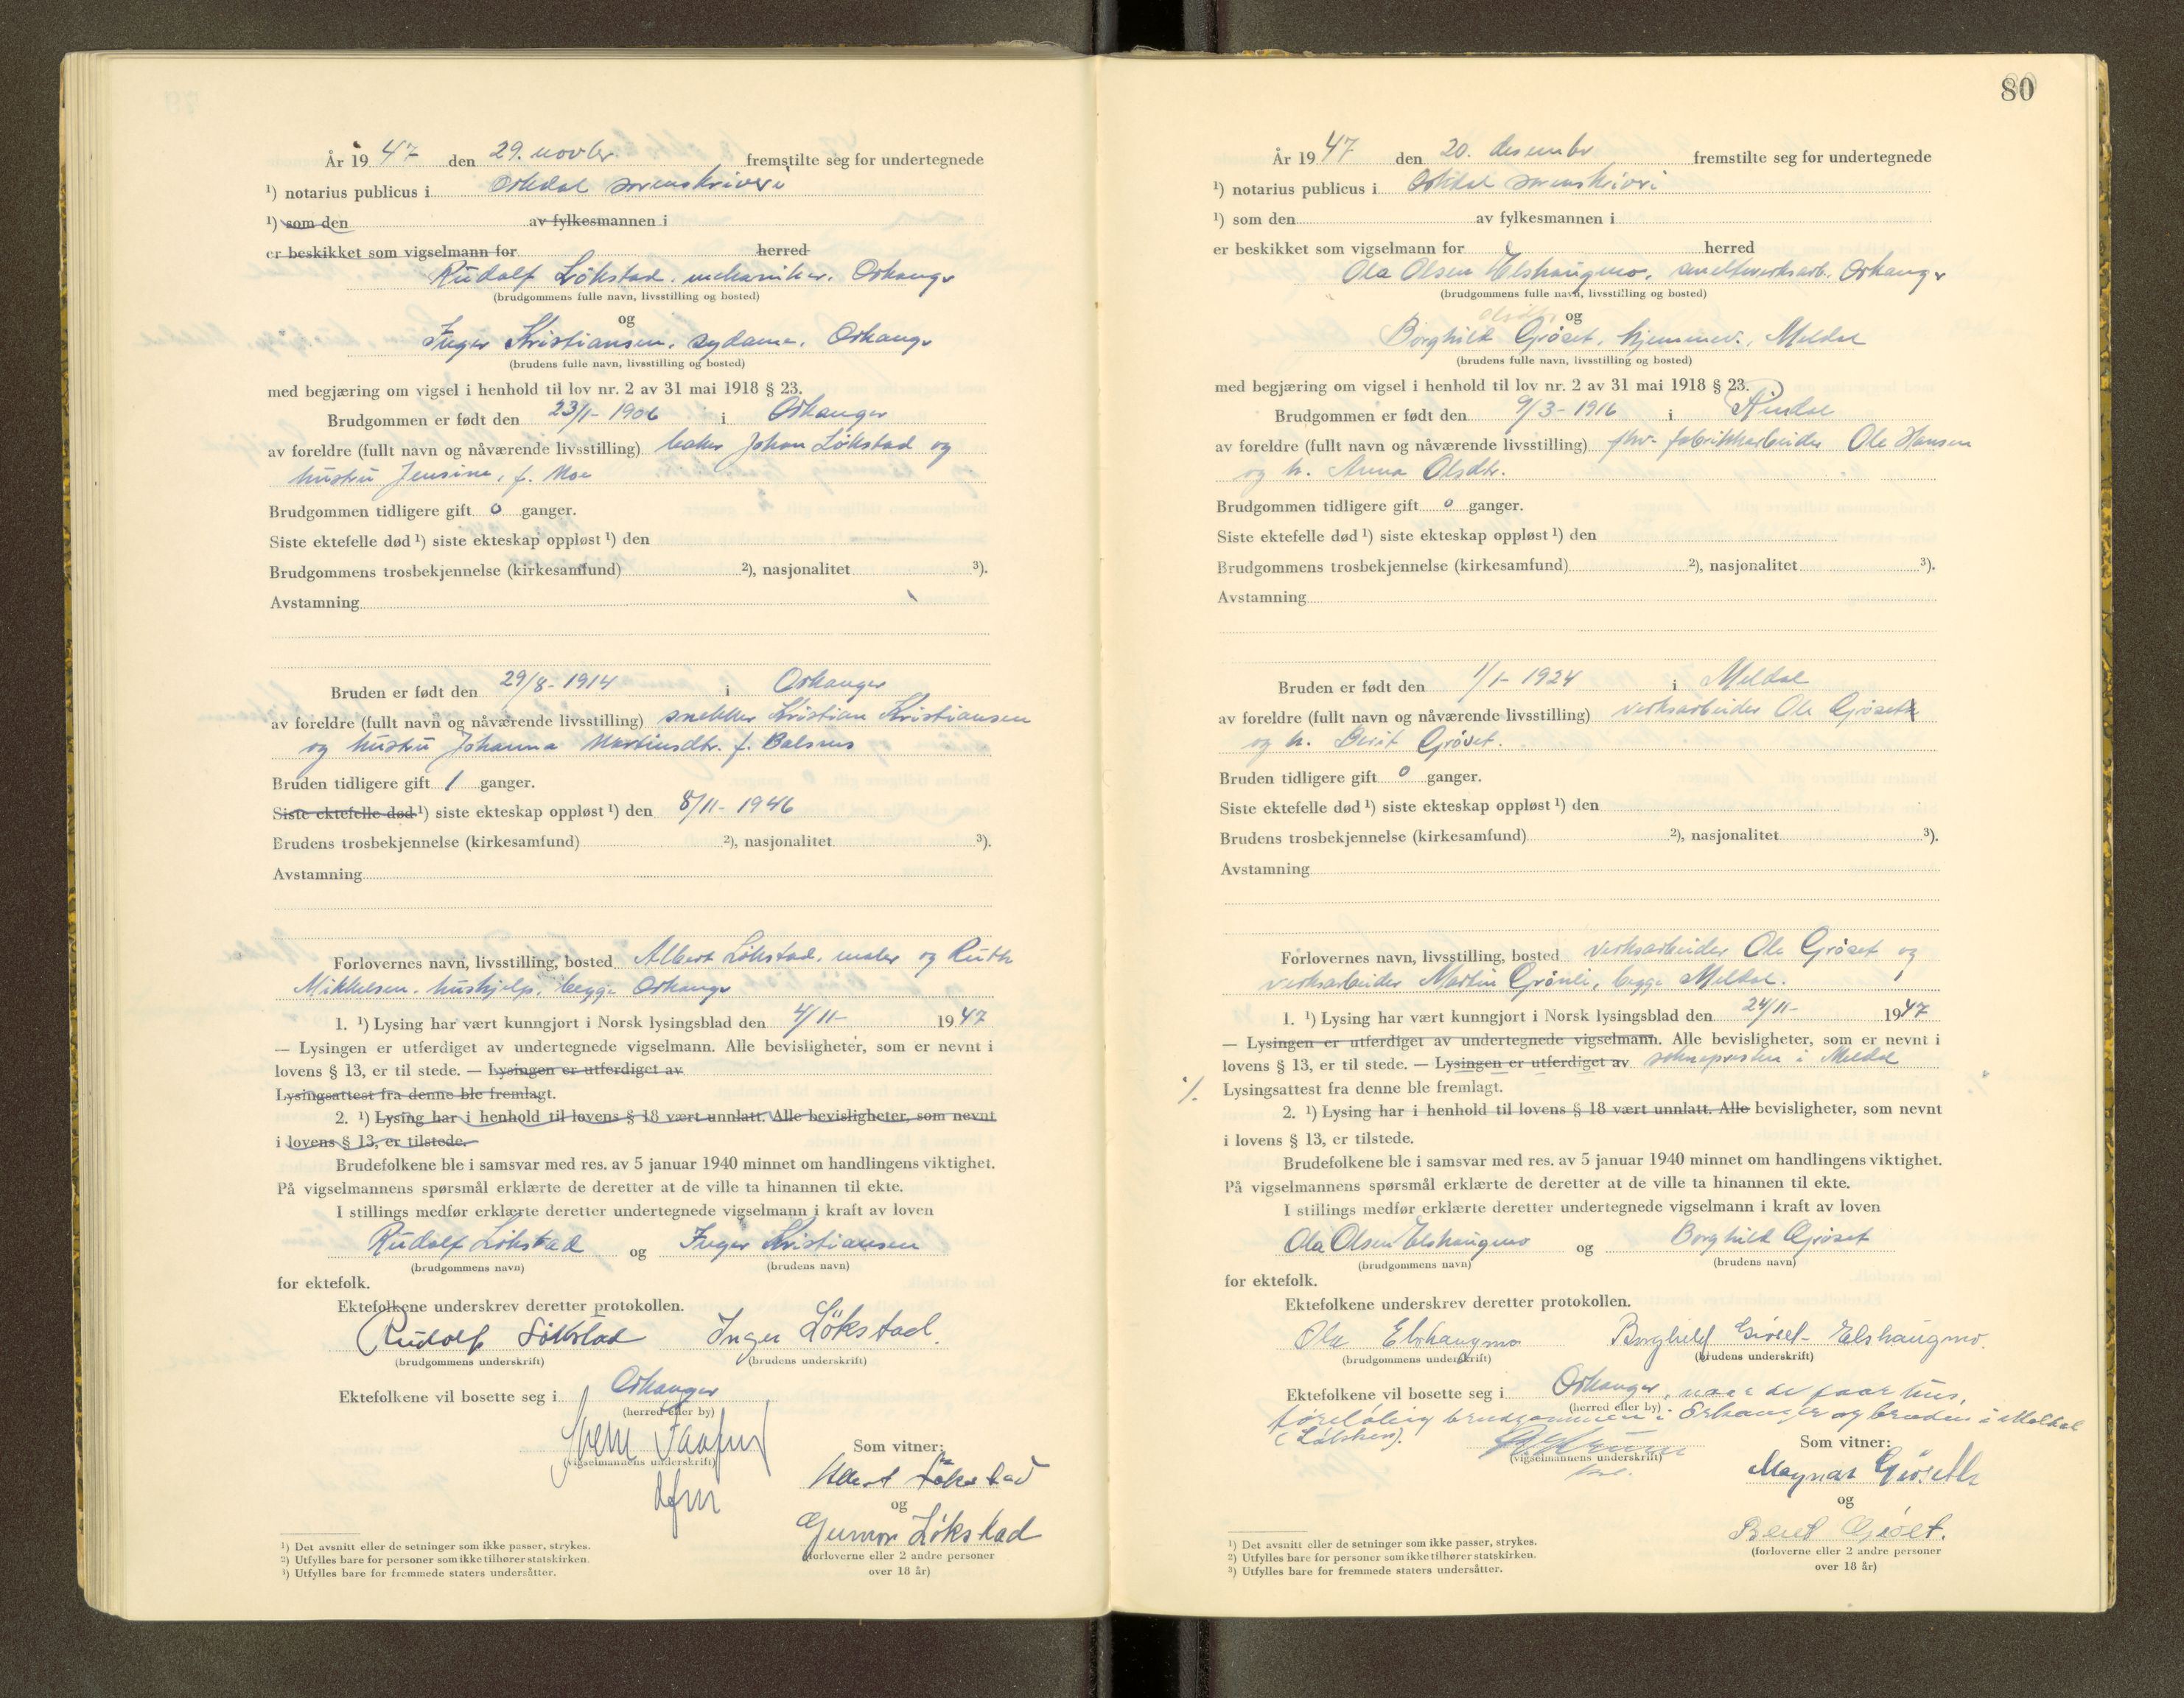 År 1947 den 29. novbr. fremstilte seg for undertegnede
¹) notarius publicus i Orkdal sorenskriveri
¹) som den av fylkesmannen i
er beskikket som vigselmann for herred
Rudolf Lökstad, mekaniker, Orkanger
(brudgommens fulle navn, livsstilling og bosted)
og
Inger Kristiansen, sydame, Orkanger
(brudens fulle navn, livsstilling og bosted)
med begjæring om vigsel i henhold til lov nr. 2 av 31 mai 1918 § 23.
Brudgommen er født den 23/1- 1906 i Orkanger
av foreldre (fullt navn og nåværende livsstilling) baker Johan Lökstad og
hustru Jensine, f. Moe
Brudgommen tidligere gift 0 ganger.
Siste ektefelle død ¹) siste ekteskap oppløst ¹) den
Brudgommens trosbekjennelse (kirkesamfund) ²), nasjonalitet ³).
Avstamning
Bruden er født den 29/8- 1914 i Orkanger
av foreldre (fullt navn og nåværende livsstilling) snekker Kristian Kristiansen
og hustru Johanna Martinsdtr. f. Balsnes
Bruden tidligere gift 1 ganger.
Siste ektefelle død ¹) siste ekteskap oppløst ¹) den 8/11- 1946
Brudens trosbekjennelse (kirkesamfund) ²), nasjonalitet ³).
Avstamning
Forlovernes navn, livsstilling, bosted Albert Lökstad, maler og Ruth
Mikkelsen, hushjelp, begge Orkanger
1. ¹) Lysing har vært kunngjort i Norsk lysingsblad den 4/11- 1947
— Lysingen er utferdiget av undertegnede vigselmann. Alle bevisligheter, som er nevnt i
lovens § 13, er til stede. — Lysingen er utferdiget av
Lysingsattest fra denne ble fremlagt.
2. ¹) Lysing har i henhold til lovens § 18 vært unnlatt. Alle bevisligheter, som nevnt
i lovens § 13, er tilstede.
Brudefolkene ble i samsvar med res. av 5 januar 1940 minnet om handlingens viktighet.
På vigselmannens spørsmål erklærte de deretter at de ville ta hinannen til ekte.
I stillings medfør erklærte deretter undertegnede vigselmann i kraft av loven
Rudolf Lökstad og Inger Kristiansen
(brudgommens navn) (brudens navn)
for ektefolk.
Ektefolkene underskrev deretter protokollen.
Rudolf Lökstad Inger Lökstad.
(brudgommens underskrift) (brudens underskrift)
Ektefolkene vil bosette seg i Orkanger
(herred eller by)
(vigselmannens underskrift)
Som vitner:
Albert Lökstad
og
Gunvor Lökstad
(forloverne eller 2 andre personer
over 18 år)
¹) Det avsnitt eller de setninger som ikke passer, strykes.
²) Utfylles bare for personer som ikke tilhører statskirken.
³) Utfylles bare for fremmede staters undersåtter.
80
År 1947 den 20. desembr fremstilte seg for undertegnede
¹) notarius publicus i Orkdal sorenskriveri
¹) som den av fylkesmannen i
er beskikket som vigselmann for herred
Ola Olsen Elshaugmo, smelteverksarb. Orkanger
(brudgommens fulle navn, livsstilling og bosted)
og
Borghild Gröset, hjemmev., Meldal
(brudens fulle navn, livsstilling og bosted)
med begjæring om vigsel i henhold til lov nr. 2 av 31 mai 1918 § 23.
Brudgommen er født den 9/3- 1916 i Rindal
av foreldre (fullt navn og nåværende livsstilling) fhv. fabrikkarbeider Ole Hansen
og h. Anna Olsdtr.
Brudgommen tidligere gift 0 ganger.
Siste ektefelle død ¹) siste ekteskap oppløst ¹) den
Brudgommens trosbekjennelse (kirkesamfund) ²), nasjonalitet ³).
Avstamning
Bruden er født den 1/1- 1924 i Meldal
av foreldre (fullt navn og nåværende livsstilling) verksarbeider Ole Gröset
og h. Berit Gröset.
Bruden tidligere gift 0 ganger.
Siste ektefelle død ¹) siste ekteskap oppløst ¹) den
Brudens trosbekjennelse (kirkesamfund) ²), nasjonalitet ³).
Avstamning
Forlovernes navn, livsstilling, bosted verksarbeider Ole Gröset og
verksarbeider Martin Grönli, begge Meldal.
1. ¹) Lysing har vært kunngjort i Norsk lysingsblad den 24/11- 1947
— Lysingen er utferdiget av undertegnede vigselmann. Alle bevisligheter, som er nevnt i
lovens § 13, er til stede. — Lysingen er utferdiget av soknepresten i Meldal
./. Lysingsattest fra denne ble fremlagt.
2. ¹) Lysing har i henhold til lovens § 18 vært unnlatt. Alle bevisligheter, som nevnt
i lovens § 13, er tilstede.
Brudefolkene ble i samsvar med res. av 5 januar 1940 minnet om handlingens viktighet.
På vigselmannens spørsmål erklærte de deretter at de ville ta hinannen til ekte.
I stillings medfør erklærte deretter undertegnede vigselmann i kraft av loven
Ola Olsen Elshaugmo og Borghild Gröset
(brudgommens navn) (brudens navn)
for ektefolk.
Ektefolkene underskrev deretter protokollen.
Ola Elshaugmo Borghild Gröset Elshaugmo.
(brudgommens underskrift) (brudens underskrift)
Ektefolkene vil bosette seg i Orkanger, naar de faar hus,
(herred eller by)
foreløbig brudgommen i Orkanger og bruden i Meldal
(Løkken).
(vigselmannens underskrift)
Som vitner:
Magnar Gröseth
og
Beret Gröset.
(forloverne eller 2 andre personer
over 18 år)
¹) Det avsnitt eller de setninger som ikke passer, strykes.
²) Utfylles bare for personer som ikke tilhører statskirken.
³) Utfylles bare for fremmede staters undersåtter.